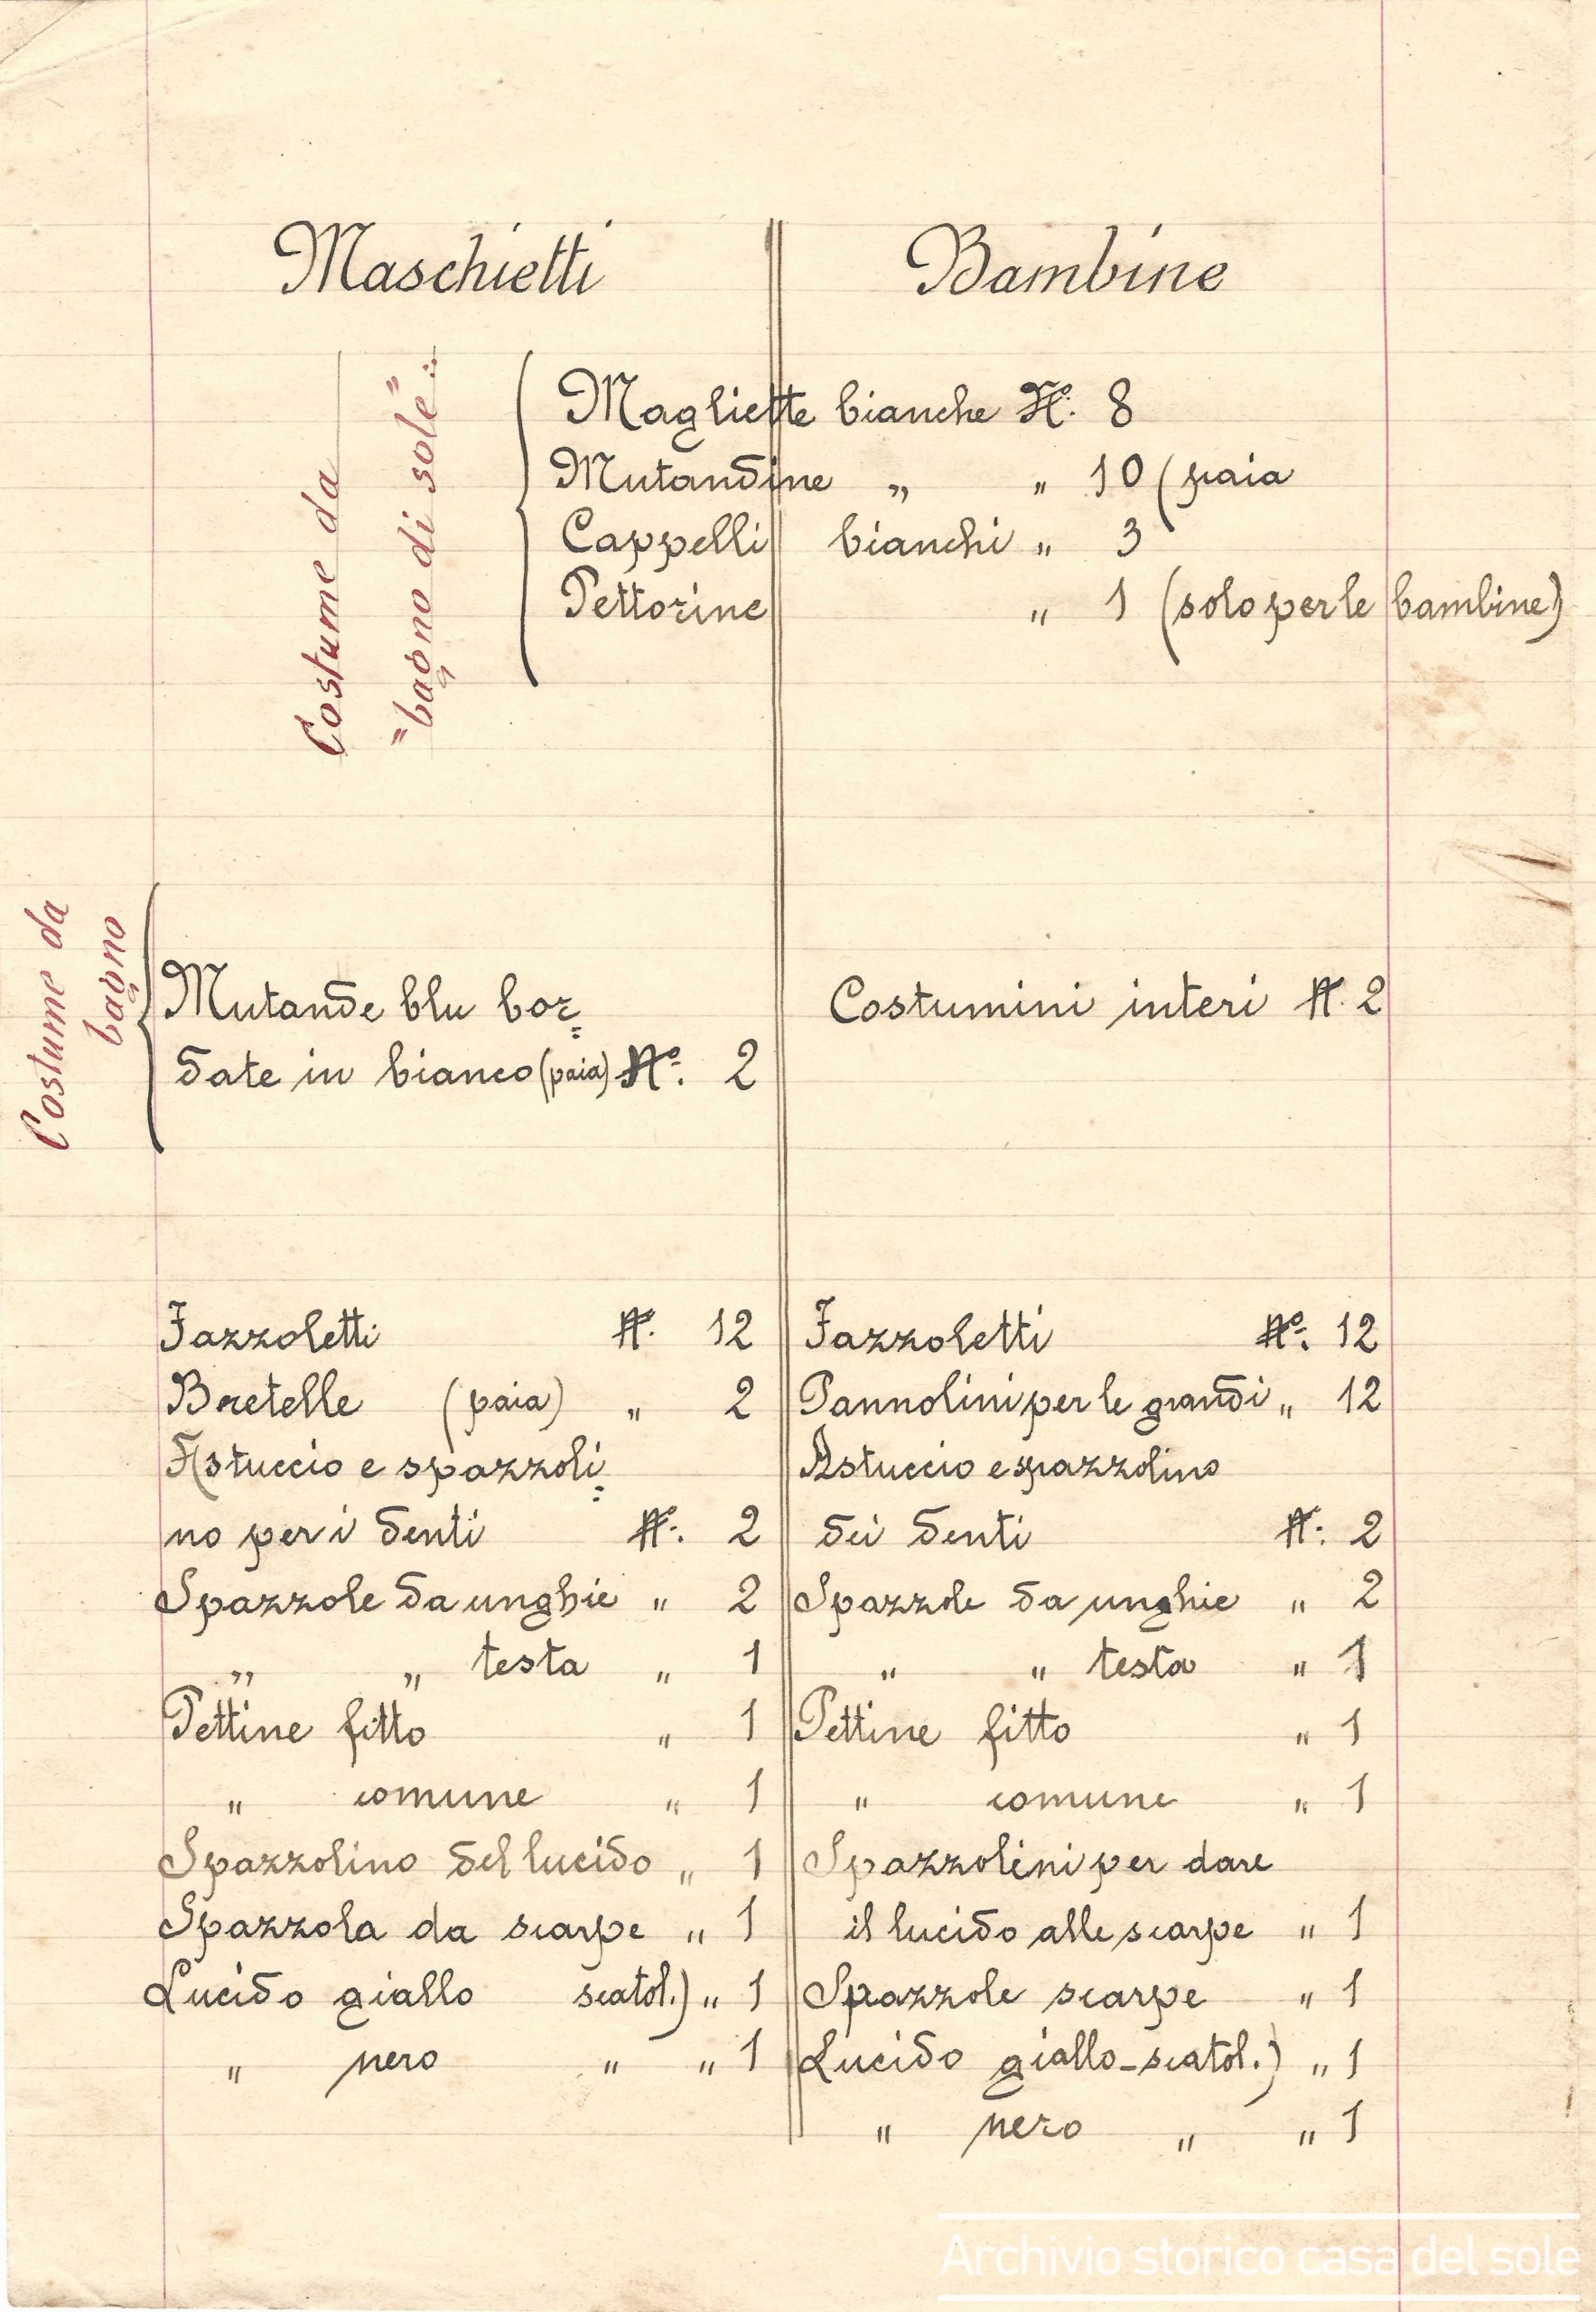 Maschietti Bambine
Costume da
"bagno di sole":
Magliette bianche N°. 8
Mutandine „ „ 10 (paia
Cappelli bianchi „ 3
Pettorine „ 1 (solo per le bambine)
Costume da
bagno
Mutande blu bor=
date in bianco (paia) N°. 2
Costumini interi N. 2
Fazzoletti N. 12
Bretelle (paia) „ 2
Astuccio e spazzoli=
no per i denti N. 2
Spazzole da unghie „ 2
„ „ testa „ 1
Pettine fitto „ 1
„ comune „ 1
Spazzolino del lucido „ 1
Spazzola da scarpe „ 1
Lucido giallo scatol.) „ 1
„ nero „ „ 1
Fazzoletti N°. 12
Pannolini per le grandi „ 12
Astuccio e spazzolino
dei denti N. 2
Spazzole da unghie „ 2
„ „ testa „ 1
Pettine fitto „ 1
„ comune „ 1
Spazzolini per dare
il lucido alle scarpe „ 1
Spazzole scarpe „ 1
Lucido giallo-scatol.) „ 1
„ nero „ „ 1
Archivio storico casa del sole